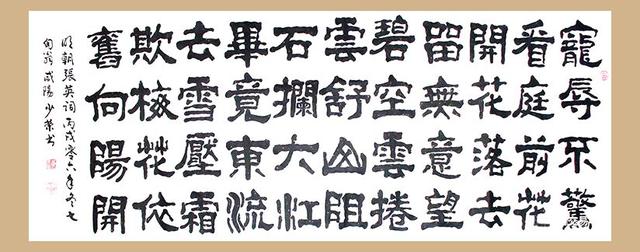 寵辱不驚
看庭前花
開花落去
留無意望
碧空雲捲
雲舒山阻
石攔大江
畢竟東流
去雪壓霜
欺梅花依
舊向陽開
明朝張英詞丙戌零六年冬七
旬翁咸陽少榮书